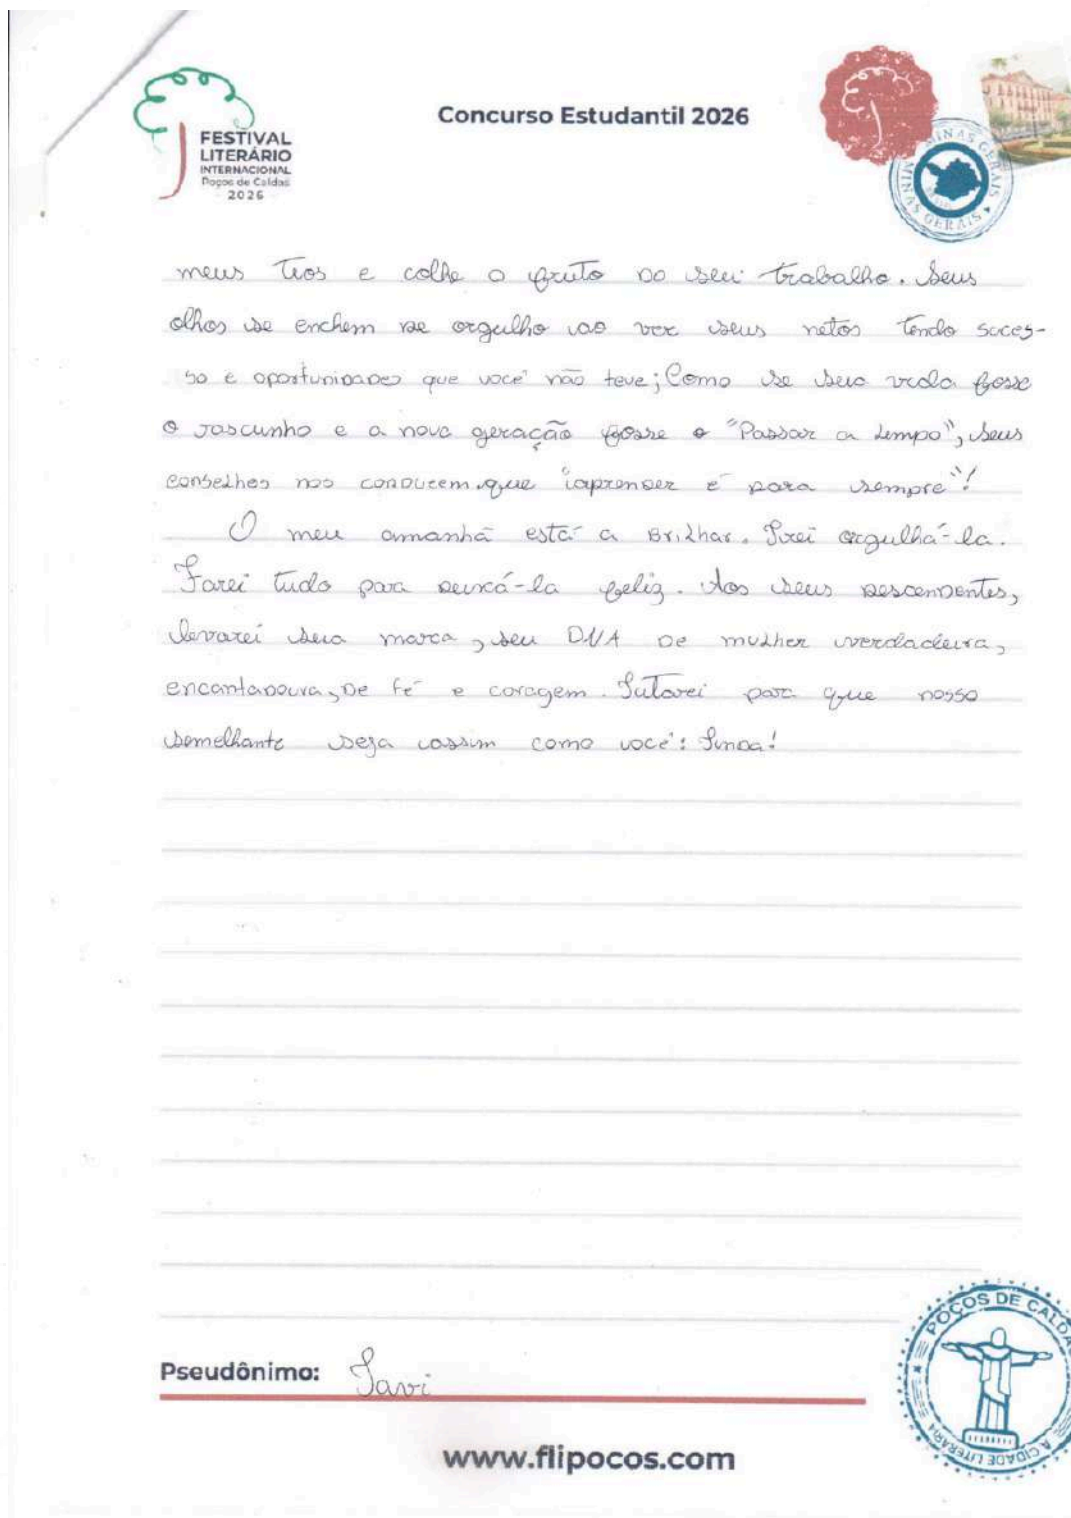 FESTIVAL
LITERÁRIO
INTERNACIONAL
Poços de Caldas
- 2026 -
Concurso Estudantil 2026
MINAS GERAIS
MINAS GERAIS
meus tios e colhe o fruto do seu trabalho. Seus
olhos se enchem de orgulho ao ver seus netos tendo suces-
so e oportunidades que você não teve; Como se seu vida fosse
o rascunho e a nova geração fosse o "Passar a Limpo", seus
conselhos nos conduzem, que "aprender é para sempre"!
O meu amanhã está a Brilhar. Irei orgulhá-la.
Farei tudo para deixá-la feliz. Aos seus descendentes,
levarei sua marca, seu DNA de mulher verdadeira,
encantadoura, de fé e coragem. Lutarei para que nosso
semelhante seja assim como você: Linda!
Pseudônimo: Javi
POÇOS DE CALDAS
A CIDADE LITERÁRIA
www.flipocos.com